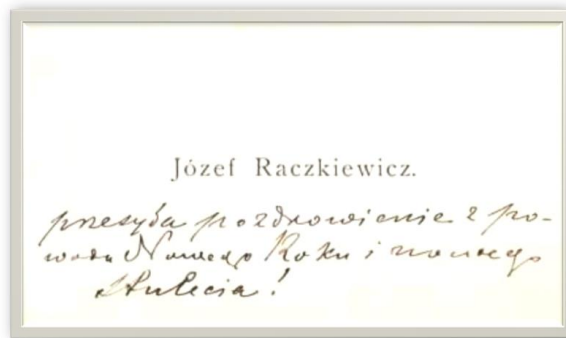 Józef Raczkiewicz.
przesyła pozdrowienie z po-
wodu Nowego Roku i nowego
stulecia!